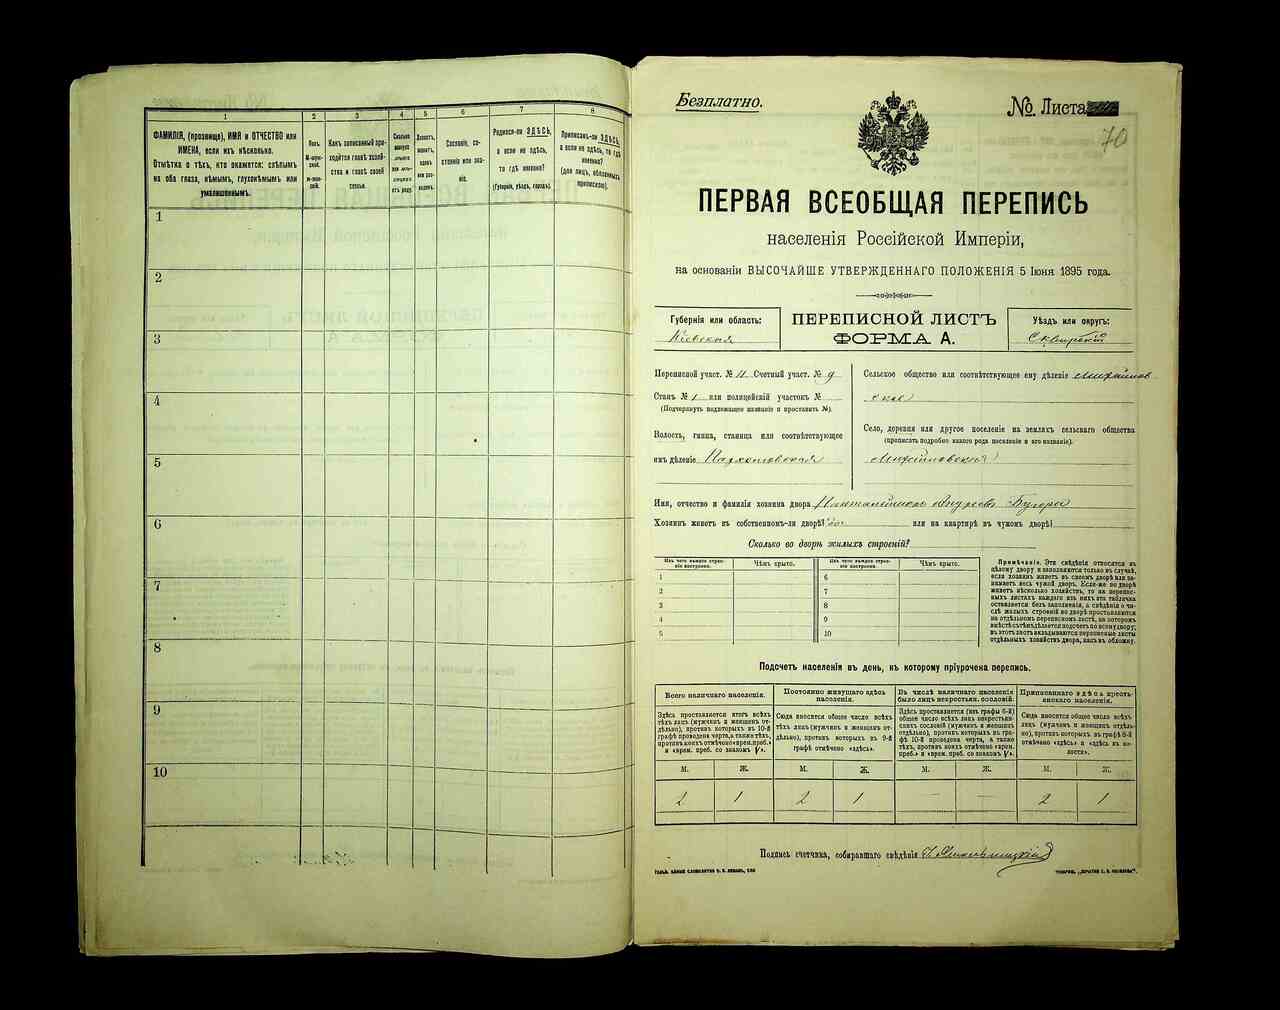 1
2
3
4
5
6
7
8
ФАМИЛІЯ, (прозвище), ИМЯ и ОТЧЕСТВО или
ИМЕНА, если ихъ нѣсколько.
Отмѣтка о тѣхъ, кто окажется: слѣпымъ
на оба глаза, нѣмымъ, глухонѣмымъ или
умалишеннымъ.
Полъ.
Какъ записанный при-
ходится главѣ хозяй-
ства и главѣ своей
семьи.
Сословіе, со-
стояніе или зва-
ніе.
Родился-ли ЗДѢСЬ,
а если не здѣсь,
то гдѣ именно?
(Губернія, уѣздъ, городъ).
Приписанъ-ли ЗДѢСЬ,
а если не здѣсь, то гдѣ
именно?
(для лицъ, обязанныхъ
припискою).
1
2
3
4
5
6
7
8
9
10
Безплатно.
№ Листа
70
ПЕРВАЯ ВСЕОБЩАЯ ПЕРЕПИСЬ
населенія Россійской Имперіи,
на основаніи ВЫСОЧАЙШЕ УТВЕРЖДЕННАГО ПОЛОЖЕНІЯ 5 Іюня 1895 года.
Губернія или область:
Кіевская
ПЕРЕПИСНОЙ ЛИСТЪ
ФОРМА А.
Уѣздъ или округъ:
Сквирскій
Переписной участ. № 11 Счетный участ. № 9
Станъ № 1 или полицейскій участокъ №
(Подчеркнуть надлежащее названіе и проставить №).
Волость, гмина, станица или соотвѣтствующее
имъ дѣленіе Пархомовская
Сельское общество или соотвѣтствующее ему дѣленіе Михайлов
ское
Село, деревня или другое поселеніе на земляхъ сельскаго общества
(прописать подробно какого рода поселеніе и его названіе).
Имя, отчество и фамилія хозяина двора
Хозяинъ живетъ въ собственномъ-ли дворѣ? или на квартирѣ въ чужомъ дворѣ?
Сколько во дворѣ жилыхъ строеній?
Изъ чего каждое строе-
ніе построено.
Чѣмъ крыто.
Изъ чего каждое строе-
ніе построено.
Чѣмъ крыто.
1
2
3
4
5
6
7
8
9
10
Примѣчаніе. Эти свѣдѣнія относятся къ
цѣлому двору и заполняются только въ случаѣ,
если хозяинъ живетъ въ своемъ дворѣ или за-
нимаетъ весь чужой дворъ. Если-же во дворѣ
живетъ нѣсколько хозяйствъ, то на перепис-
ныхъ листахъ каждаго изъ нихъ эта табличка
оставляется безъ заполненія, а свѣдѣнія о чи-
слѣ жилыхъ строеній во дворѣ проставляются
на отдѣльномъ переписномъ листѣ, на которомъ
вмѣстѣ съ тѣмъ дѣлается подсчетъ по всему двору;
въ этотъ листъ вкладываются переписные листы
отдѣльныхъ хозяйствъ двора, какъ въ обложку.
Подсчетъ населенія въ день, къ которому пріурочена перепись.
Всего наличнаго населенія.
Здѣсь проставляется итогъ всѣхъ
лицъ (мужчинъ и женщинъ от-
дѣльно), противъ которыхъ въ 10-й
графѣ проведена черта, а также тѣхъ,
противъ коихъ отмѣчено «врем. преб.»
и «врем. преб. со знакомъ V».
Постоянно живущаго здѣсь
населенія.
Сюда вносится общее число всѣхъ
тѣхъ лицъ (мужчинъ и женщинъ от-
дѣльно), противъ которыхъ въ 9-й
графѣ отмѣчено «здѣсь».
Въ числѣ наличнаго населенія
было лицъ некрестьян. сословій.
Здѣсь проставляется (изъ графы 6-й)
общее число всѣхъ лицъ некрестьян-
скихъ сословій (мужчинъ и женщинъ
отдѣльно), противъ которыхъ въ гра-
фѣ 10-й проведена черта, а также
тѣхъ, противъ коихъ отмѣчено «врем.
преб.» и «врем. преб. со знакомъ V».
Приписаннаго здѣсь кресть-
янскаго населенія.
Сюда вносятся общее число всѣхъ
лицъ (мужчинъ и женщинъ отдѣль-
но), противъ которыхъ въ графѣ 8-й
отмѣчено «здѣсь» и «здѣсь въ во-
лости».
М. Ж. М. Ж. М. Ж. М. Ж.
2 1 2 1 — — 2 1
Подпись счетчика, собиравшаго свѣдѣнія